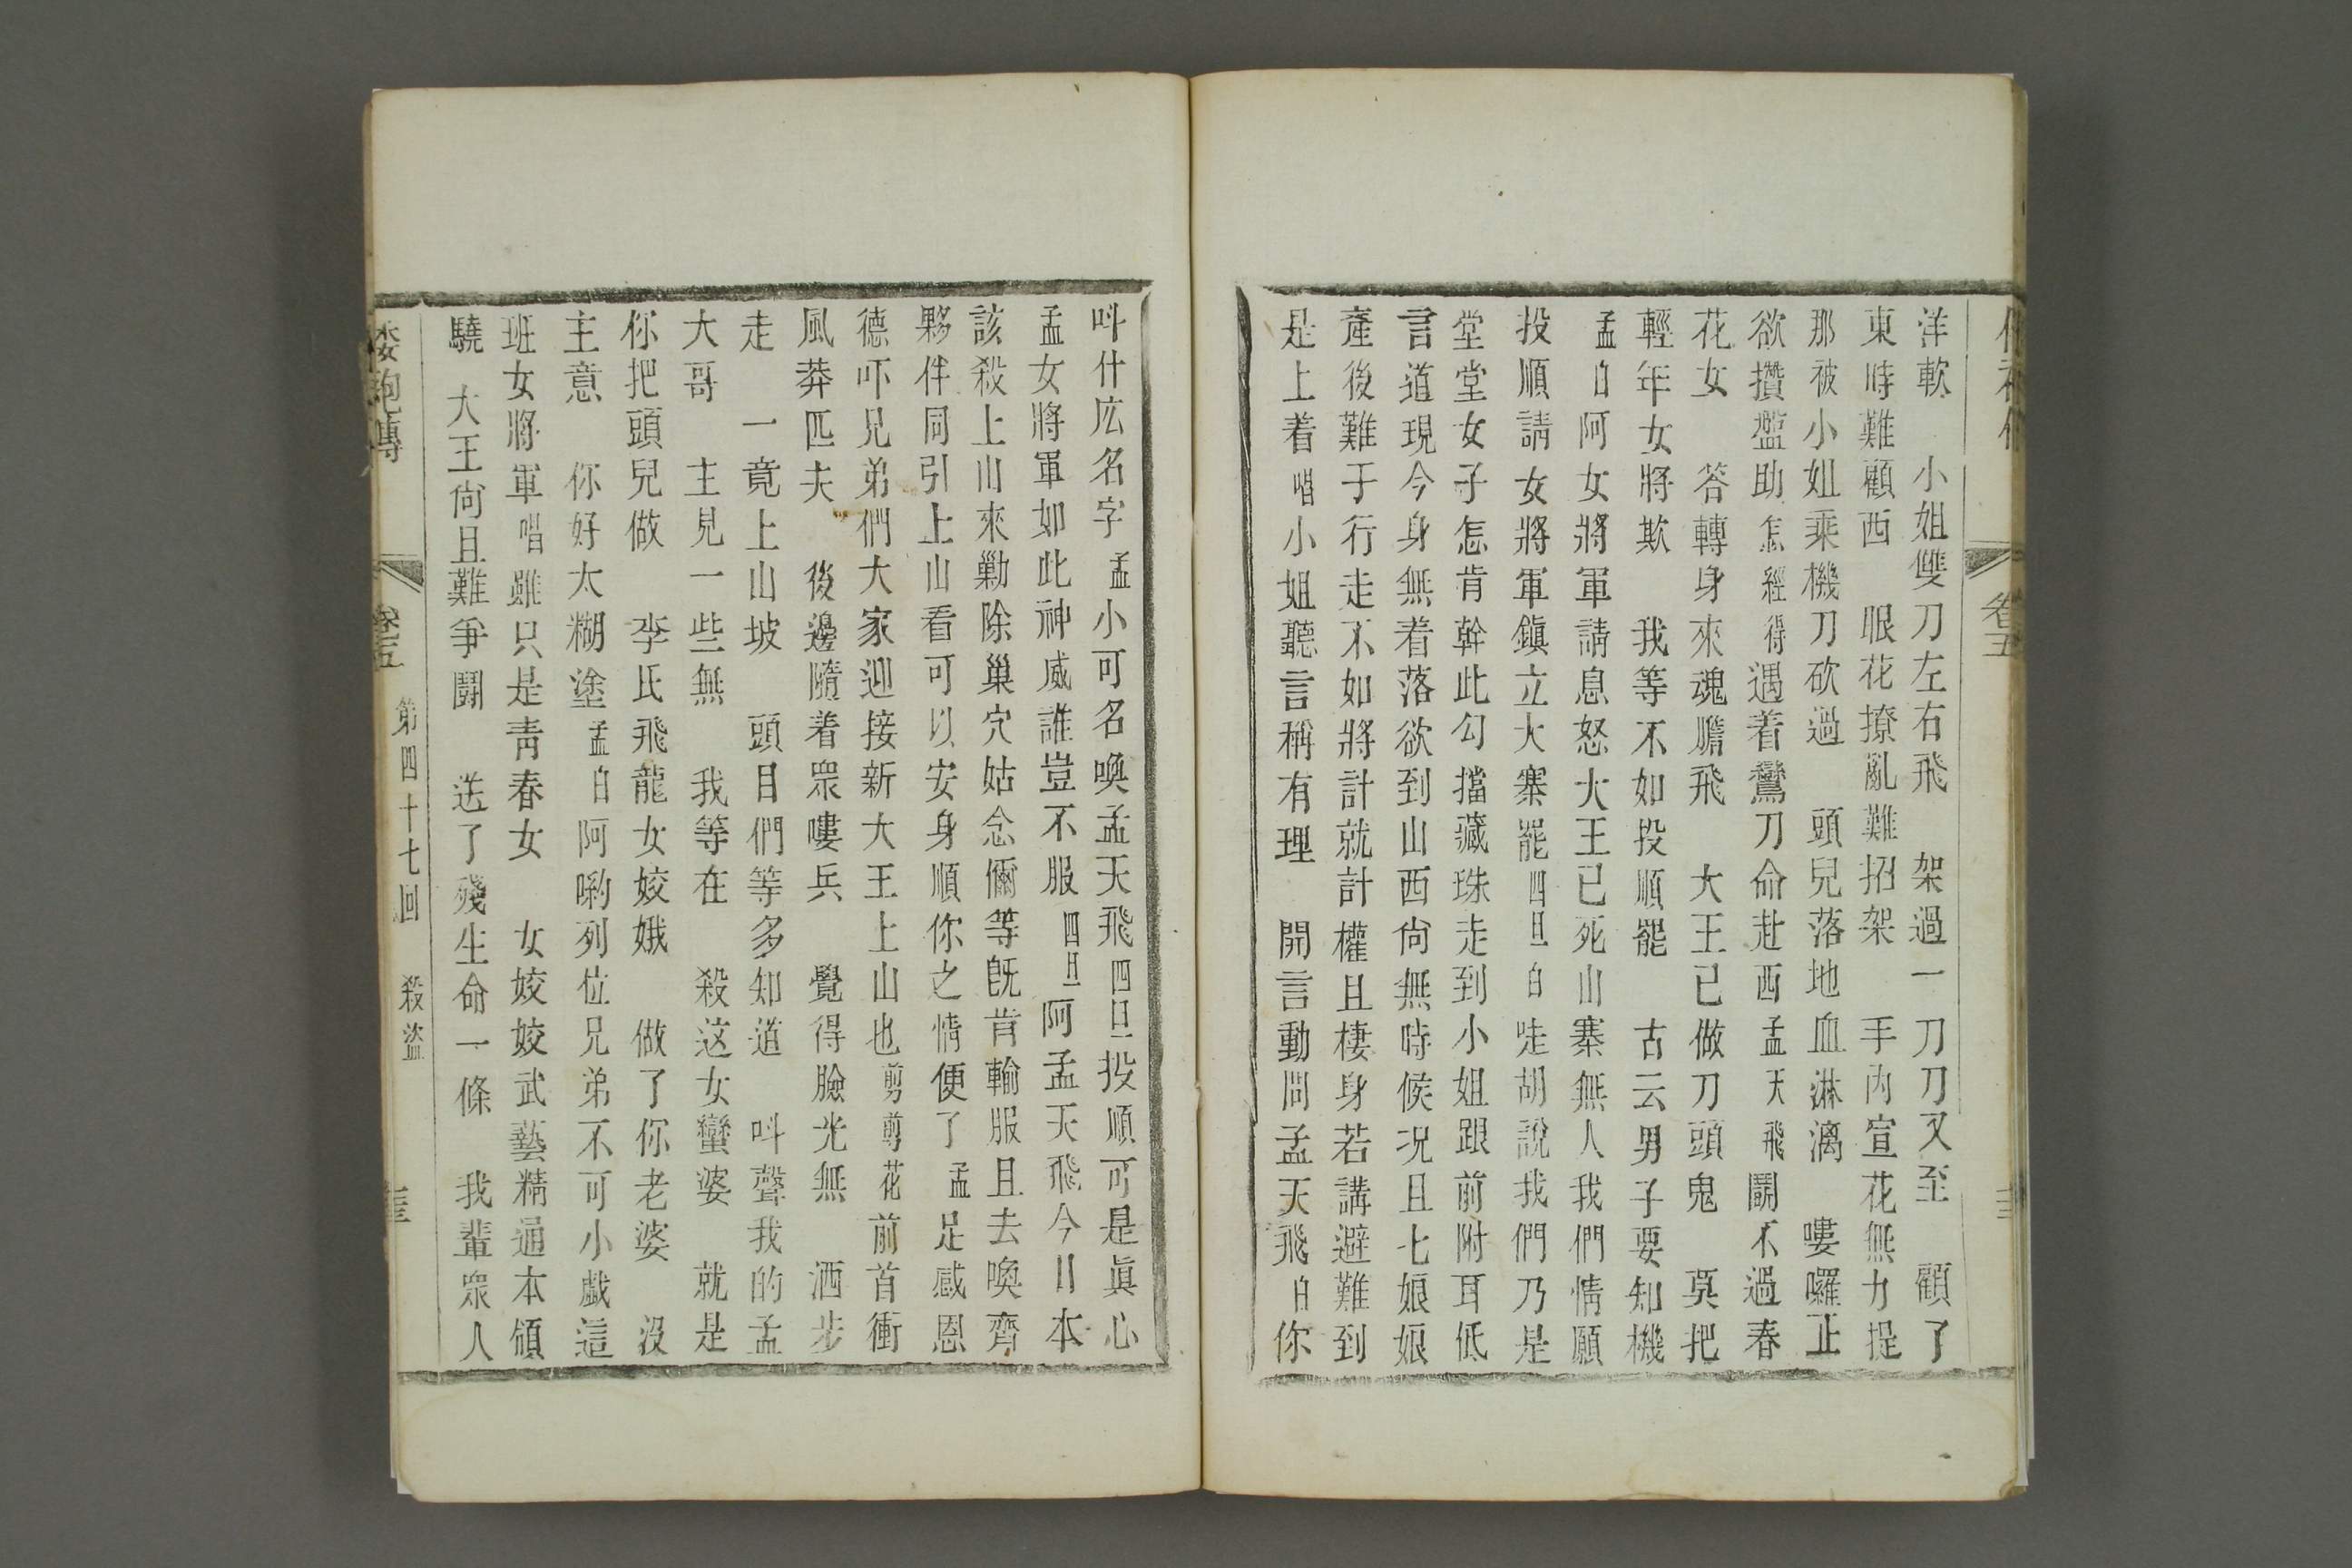 卷五
洋軟　小姐雙刀左右飛　架過一刀刀又至　顧了
東時難顧西　眼花撩亂難招架　手內宣花無力提
那被小姐乘機刀砍過　頭兒落地血淋漓　嘍囉正
欲攢籃助怎經得遇着鸞刀命赴西孟天飛鬬不過春
花女　答轉身來魂膽飛　大王已做刀頭鬼　莫把
輕年女將欺　我等不如投順罷　古云男子要知機
孟白阿女將軍請息怒大王已死山寨無人我們情願
投順請女將軍鎮立大寨罷四旦白哇胡說我們乃是
堂堂女子怎肯幹此勾擋藏珠走到小姐跟前附耳低
言道現今身無着落欲到山西尙無時候况且七娘娘
產後難于行走不如將計就計權且棲身若講避難到
是上着唱小姐聽言稱有理　開言動問孟天飛白你
叫什庅名字孟小可名喚孟天飛四旦投順可是眞心
孟女將軍如此神威誰豈不服四旦阿孟天飛今日本
該殺上山來勦除巢穴姑念儞等旣肯輸服且去喚齊
夥伴同引上山看可以安身順你之情便了孟足感恩
德吓兄弟們大家迎接新大王上山也剪剪花前首衝
風莽匹夫　後邊隨着眾嘍兵　覺得臉光無　洒步
走　一竟上山坡　頭目們等多知道　叫聲我的孟
大哥　主見一些無　我等在　殺这女蠻婆　就是
你把頭兒做　李氏飛龍女姣娥　做了你老婆　沒
主意　你好太糊塗孟白阿喲列位兄弟不可小戲這
班女將軍唱雖只是靑春女　女姣姣武藝精通本領
驍　大王尙且難爭鬬　送了殘生命一條　我輩眾人
倭袍傳　卷五　第四十七回　殺盜